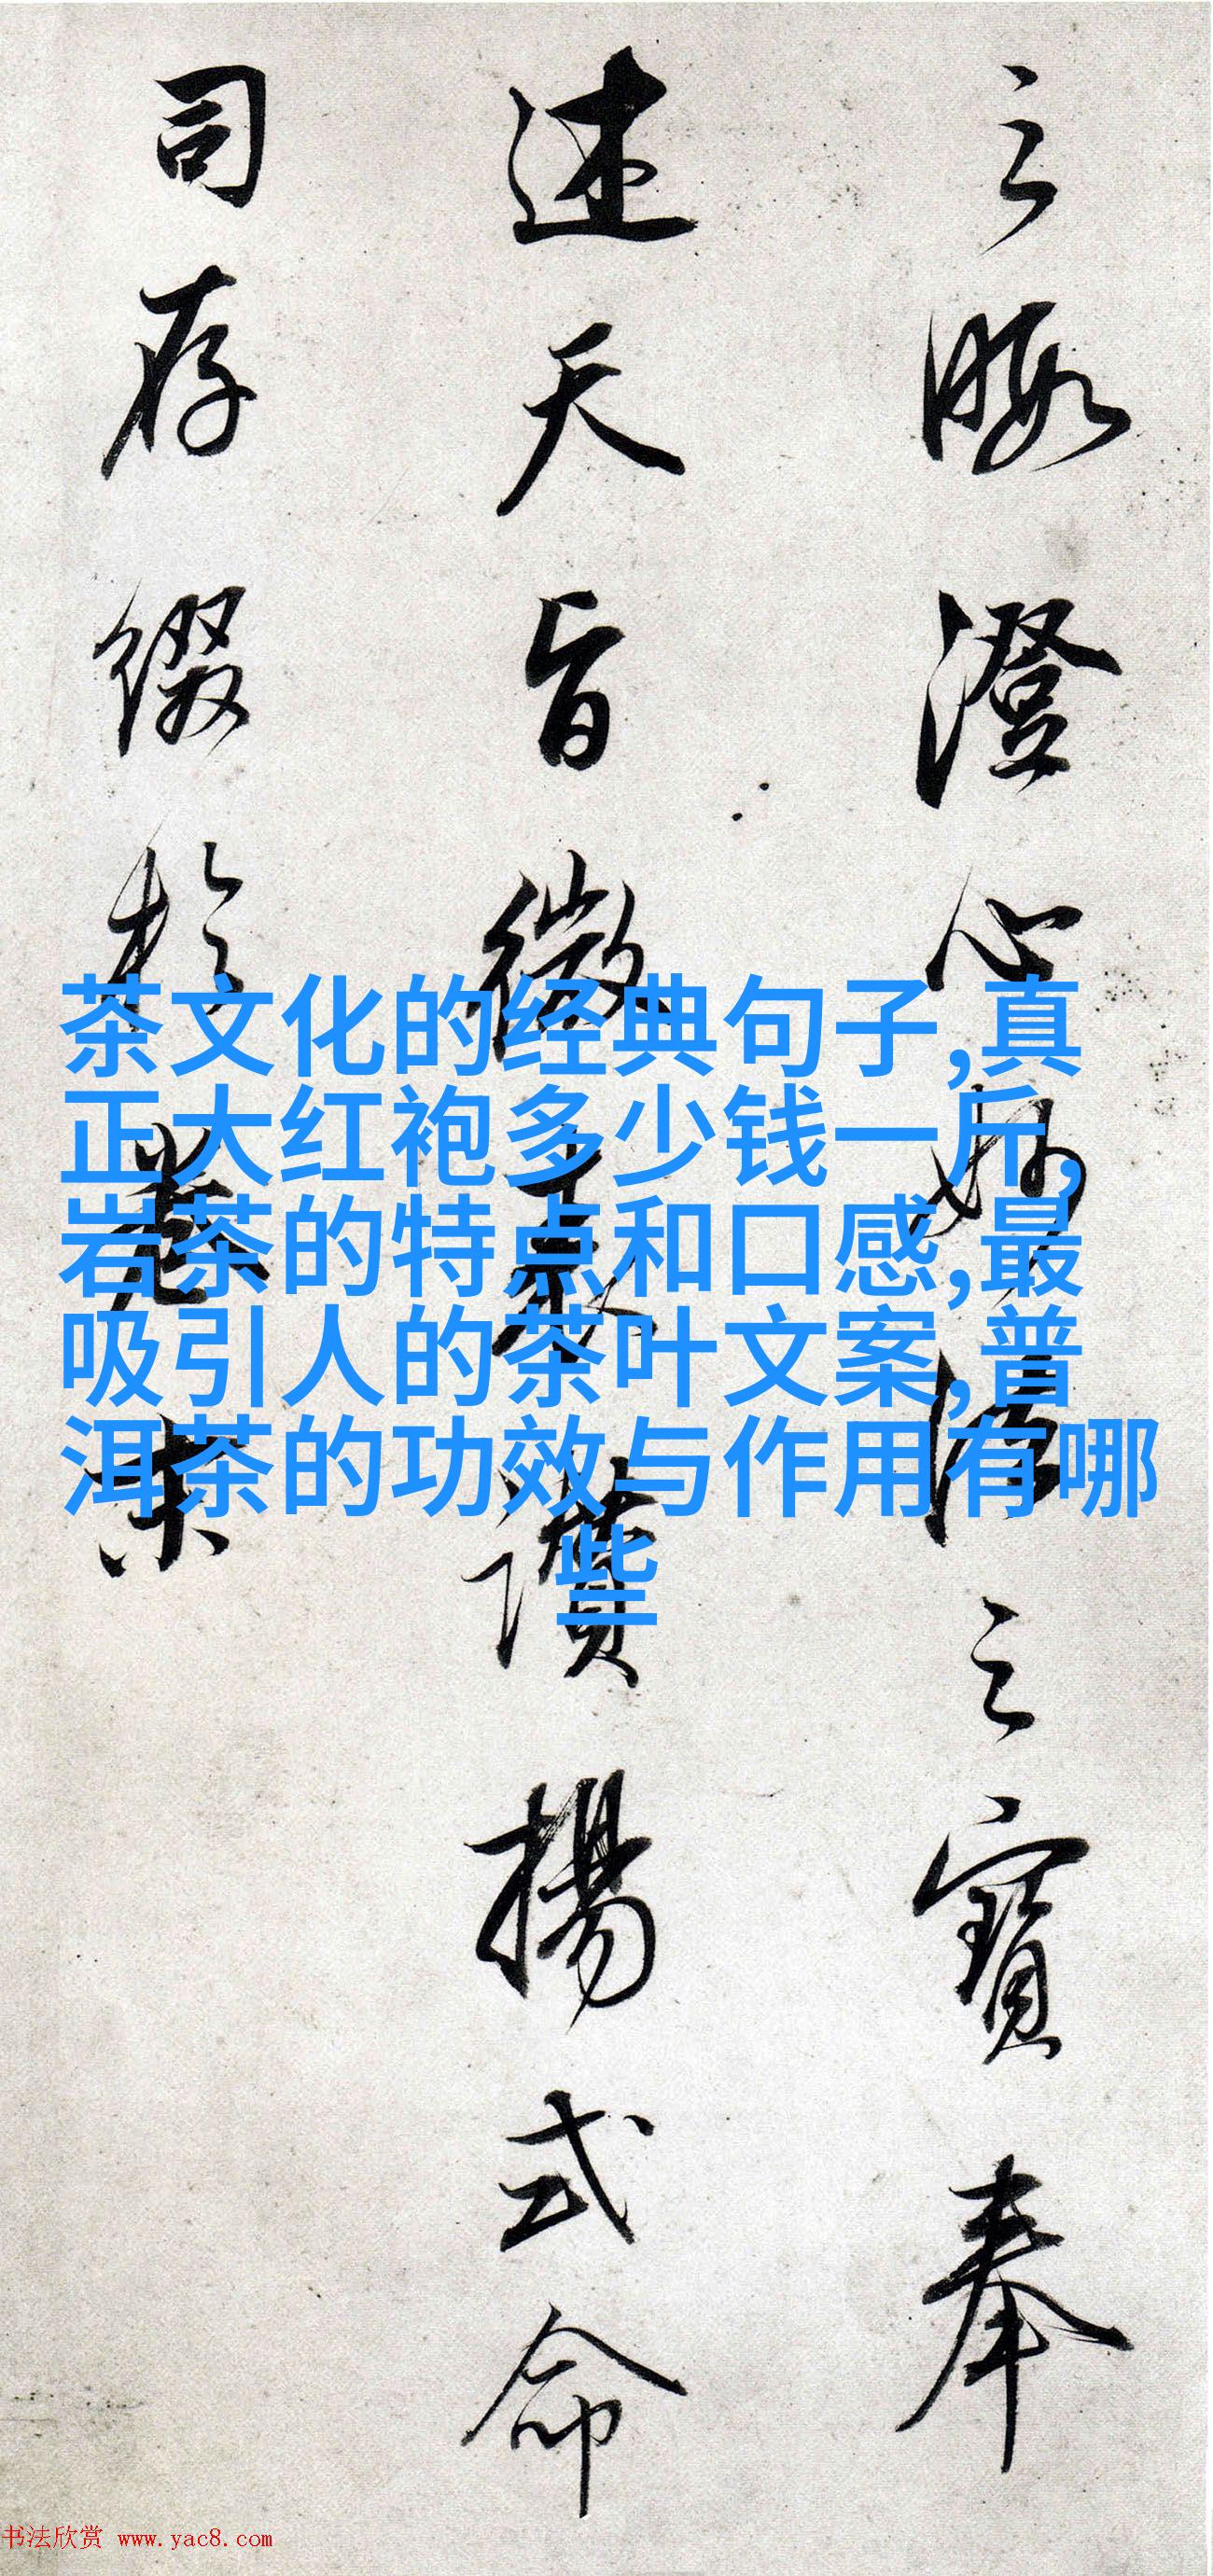 之暇澄心妙法之寶奉
述天旨微表讚揚式命
司存綴於卷末
茶文化的经典句子,真
正大红袍多少钱一斤,
岩茶的特点和口感,最
吸引人的茶叶文案,普
洱茶的功效与作用有哪
些
书法欣赏 www.yac8.com